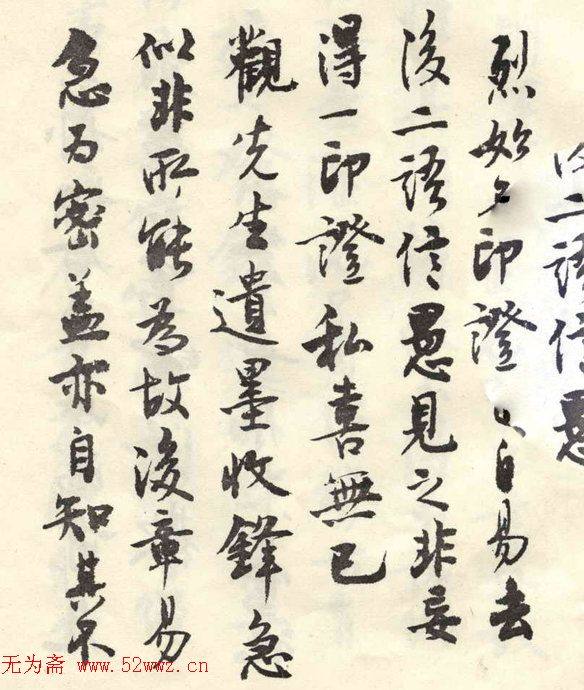 二語信愚
烈始印證自易去
後二語信愚見之非妄
得一印證私喜無已
觀先生遺墨收鋒急
似非所能為故後章易
急为密盖亦自知其不
无为斋 www.52wwz.cn